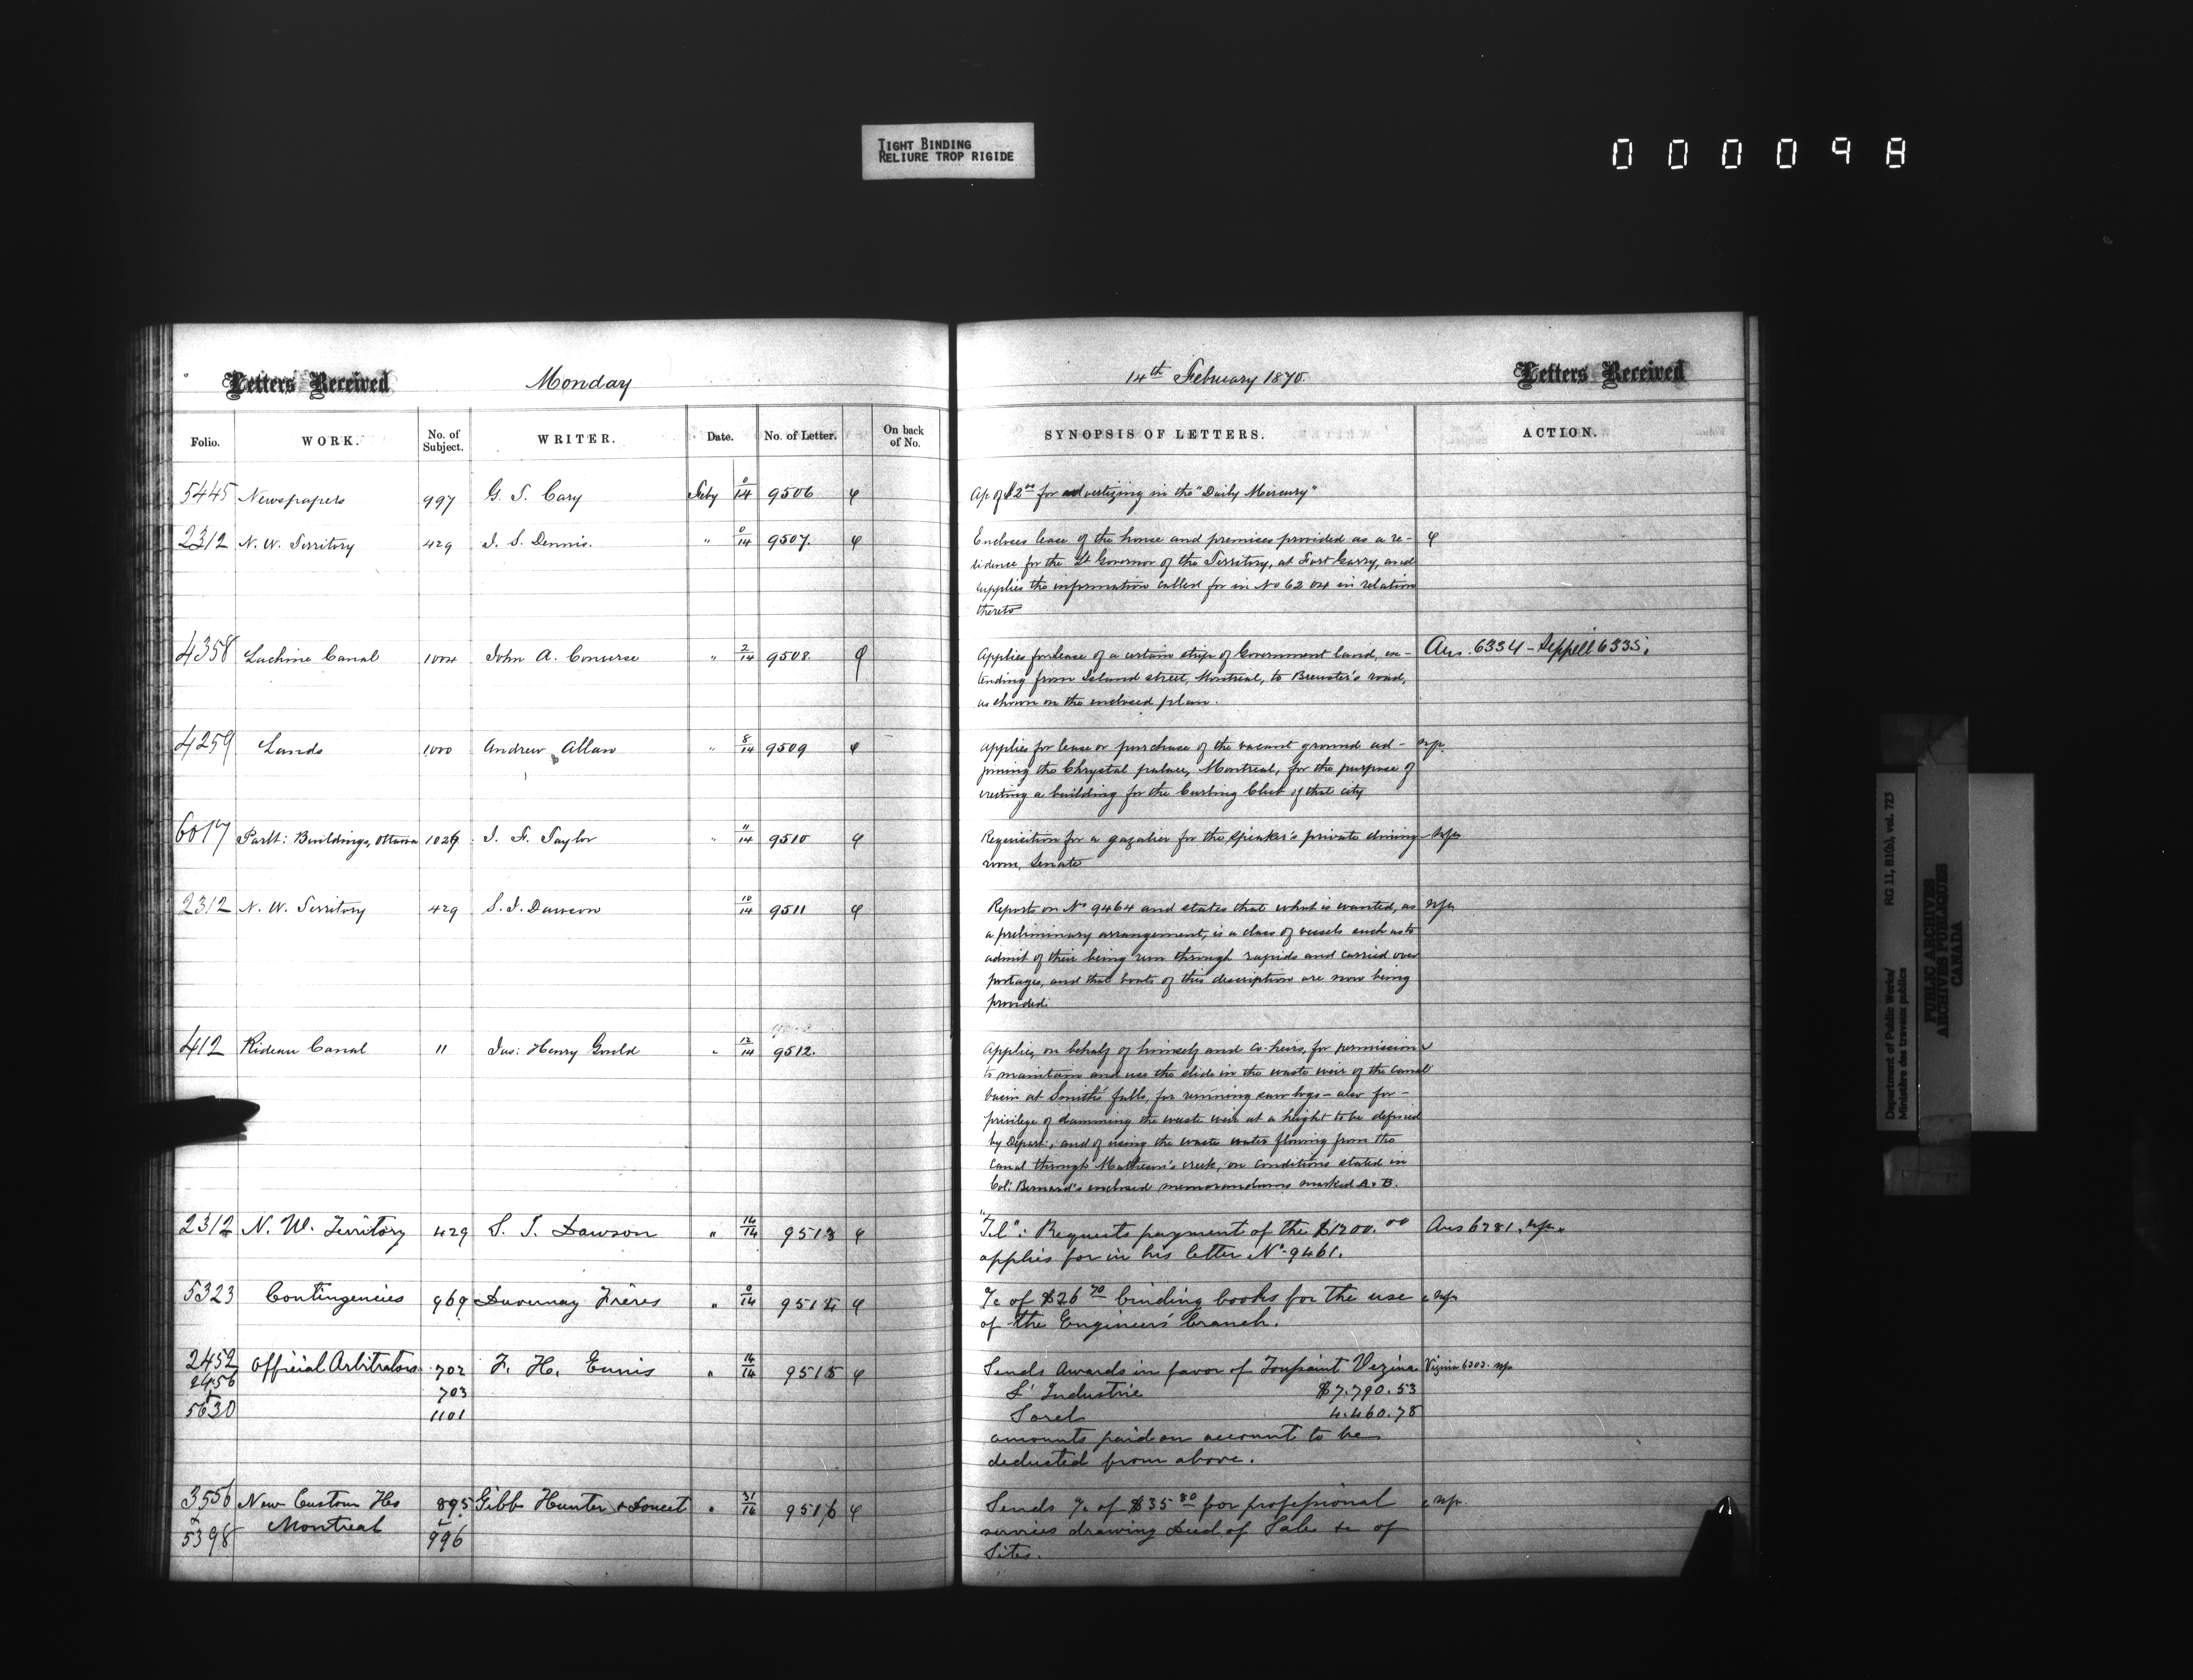 TIGHT BINDING
RELIURE TROP RIGIDE
000098
Letters Received Monday
14th February 1870. Letters Received
Folio. WORK. No. of Subject. WRITER. Date. No. of Letter. On back of No. SYNOPSIS OF LETTERS. ACTION.
5445 Newspapers 997 G. T. Cary Feby 0/14 9506
Ac of $2 00 for advertizing in the "Daily Mercury"
2312 N. W. Territory 429 J. S. Dennis. " 0/14 9507.
Encloses lease of the house and premises provided as a re-
sidence for the Lt Governor of the Territory, at Fort Garry, and
supplies the information called for in No 6204 in relation
thereto
4358 Lachine Canal 1004 John A. Converse " 2/14 9508.
Applies for lease of a certain strip of Government land, ex- Ans. 6334 - Sippell 6335.
tending from Island street, Montreal, to Brewster's road,
as shown on the enclosed plan.
4259 Lands 1000 Andrew Allan " 8/14 9509
Applies for lease or purchase of the vacant ground ad- n.p.
joining the Chrystal palace, Montreal, for the purpose of
erecting a building for the Curling Club of that city
6017 Parlt: Buildings, Ottawa 1029 J. F. Taylor " 11/14 9510
Requisition for a gazalier for the speaker's private dining n.p.
room, Senate
2312 N. W. Territory 429 S. J. Dawson 10/14 9511
Reports on No 9464 and states that what is wanted, as n.p.
a preliminary arrangement, is a class of vessels such as to
admit of their being run through rapids and carried over
portages, and that boats of this description are now being
provided.
412 Rideau Canal 11 Jas: Henry Gould " 12/14 9512.
Applies, on behalf of himself and co-heirs, for permission
to maintain and use the slide in the waste weir of the Canal
basin at Smith's falls, for running saw logs - also for -
privilege of damming the waste weir at a height to be defined
by Depart:, and of using the waste water flowing from the
Canal through Matheson's creek, on conditions stated in
Col: Bernard's enclosed memorandums marked A. B.
2312 N. W. Territory 429 S. J. Dawson " 14/14 9513
"Tel": Requests payment of the $1200. 00 Ans 6281. n.p.
applies for in his letter No. 9461.
5323 Contingencies 969 Duvernay Frères " 0/14 9514
a/c of $26 70 binding books for the use n.p.
of the Engineers' branch.
2452 Official Arbitrators 702 F. H. Ennis " 14/14 9515
2456 703
+
5630 1101
Sends Awards in favor of Toussaint Vezina Vezina 6303. n.p.
L'Industrie $7.790.53
Sorel 4.460.78
amounts paid on account to be
deducted from above.
3556 New Custom Hs 895 Gibb Hunter & Doucet " 31/14 9516
& Montreal
5398 996
Sends a/c of $35 80 for professional n.p.
services drawing Deed of Sale &c of
Sites.
Department of Public Works/ RG 11, B1(b), vol. 723
Ministère des travaux publics
PUBLIC ARCHIVES
ARCHIVES PUBLIQUES
CANADA